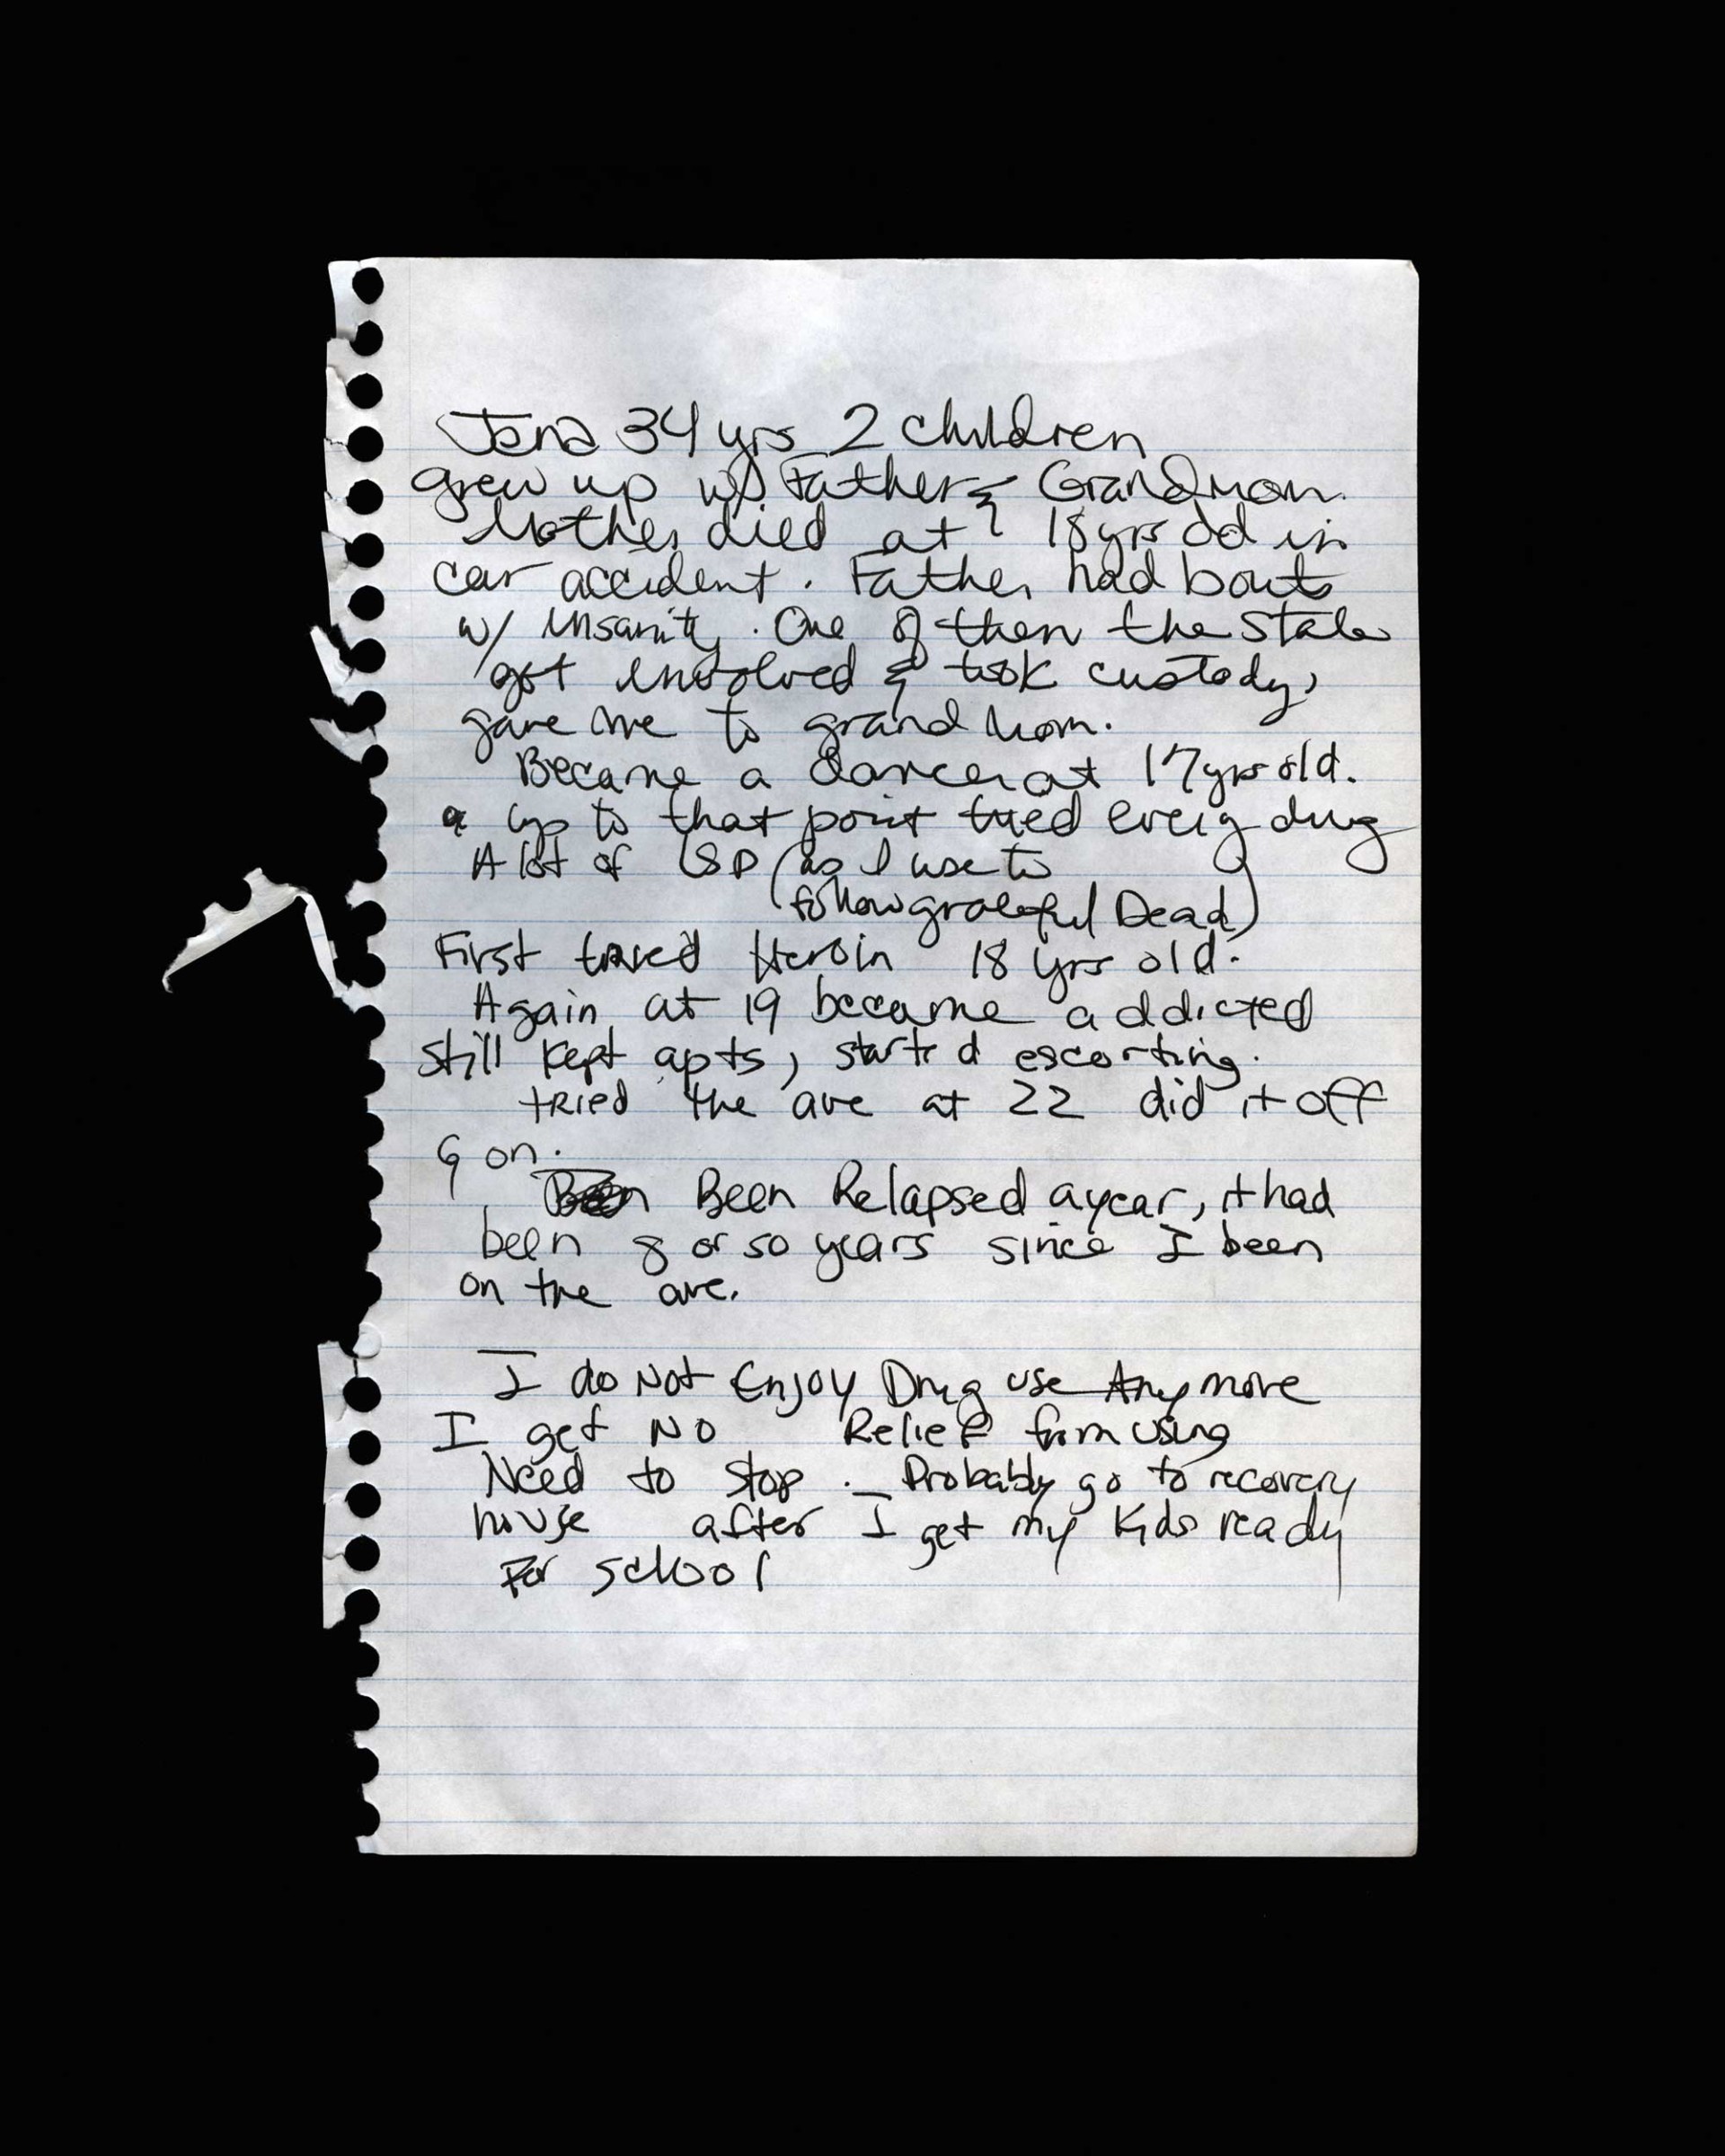 Jena 34 yrs 2 children
grew up w/ Father & Grandmom.
Mother died at 18 yrs old in
car accident. Father had bouts
w/ insanity. One of them the State
got involved & took custody,
gave me to grand mom.
Became a dancer at 17 yrs old.
up to that point tried every drug
A lot of LSD (as I use to
follow grateful Dead)
First tried Heroin 18 yrs old.
Again at 19 became addicted
still kept apts, started escorting.
tried the ave at 22 did it off
& on.
Been Relapsed a year, it had
been 8 or so years since I been
on the ave.
I do Not Enjoy Drug use Anymore
I get No Relief from using
Need to stop. Probably go to recovery
house after I get my kids ready
For school